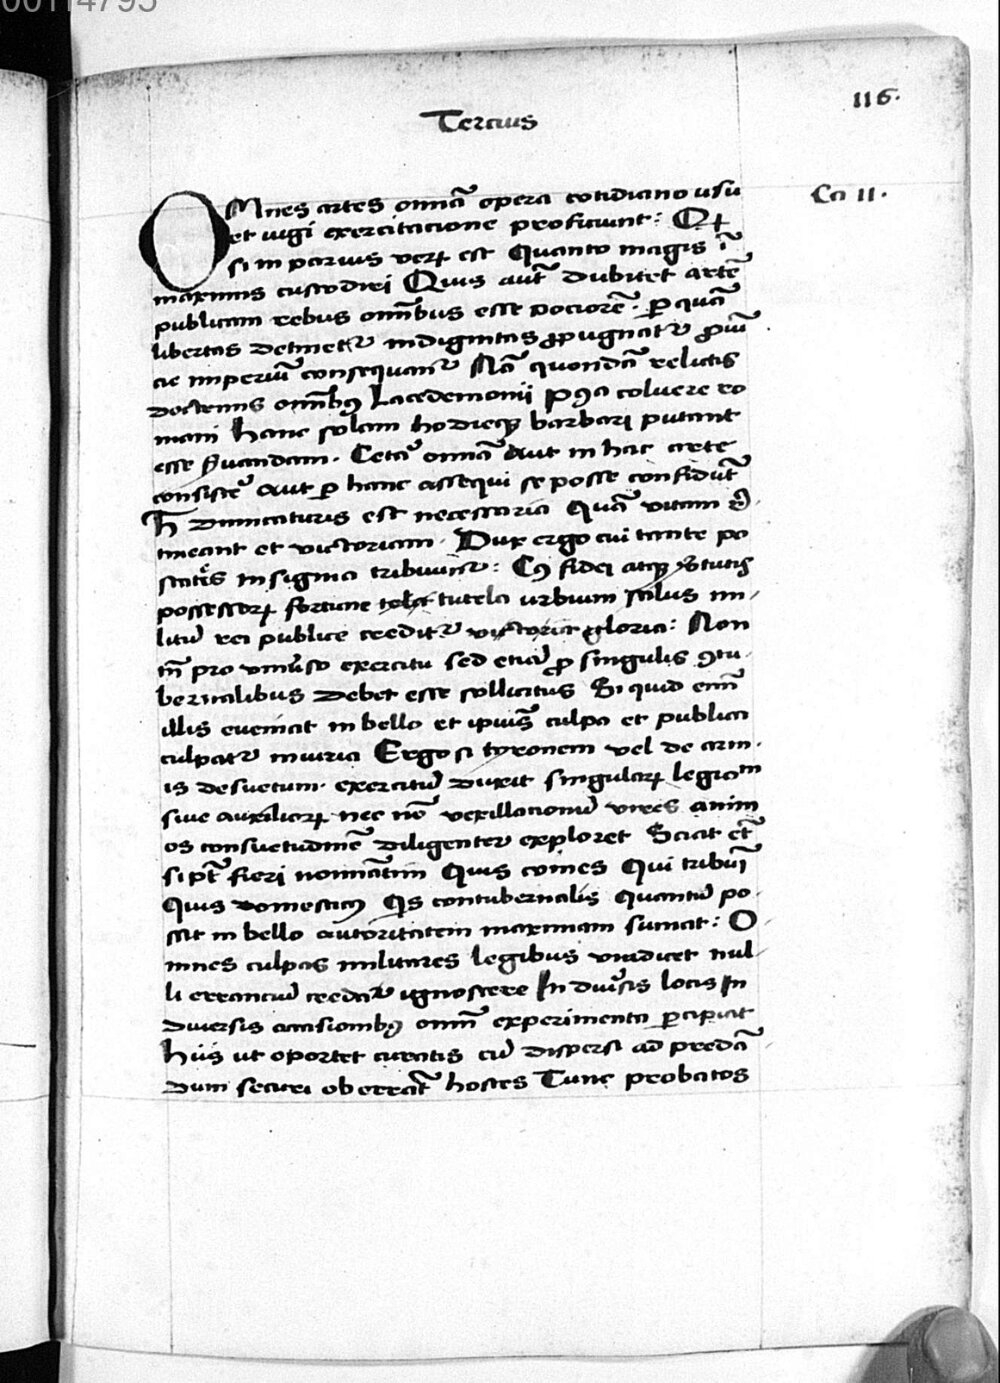 00114795
116.
Tercius
Ca II.
OMnes artes omniā opera cotidiano usu
et iugi exercitacione proficiunt: Qꝫ
si in paruis verꝫ est Quanto magis ī
maximis custodiri Quis aut̄ dubitet artē
publicam rebus omībus esse pociorē. ꝑ quā
libertas detinet᷑ indignitas ꝓpugnat᷑ ꝓuī
cie imperiū consequant᷑ Nā quondā relictis
doctrinis omībꝯ Lacedemonij pꝯa coluere ro
mani hanc solam hodieqꝫ barbari putant
esse ẜuandam. Cetā omniā aut in hac arte
consistē aut ꝑ hanc assequi se posse confidūt
h̄ dimicaturis est necessaria Quā vitam re
tineant et victoriam. Dux ergo cui tante po
statēs insignia tribuunt᷑: Cꝯ fidei atqꝫ ỽtutiẜ
possessorꝫ fortune tutela urbium salus mi
litū rei publice credit᷑ victorie gloria: Non
tm̄ pro vniuẜo exercitu sed eciā ꝓ singulis ꝯtu
bernalibus debet esse sollicitus Si quid enī
illis eueniat in bello et ipius̄ culpa et publica
culpat᷑ iniuria Ergo si tyronem vel de arm
is desuetum. exercitū duxit singularꝫ legion
siue auxiliorꝫ nec nō vexillacionū vires anim
os consuetudinē diligenter exploret Sciat et̄
si pt̄ fieri nominatim Quis comes Qui tribuī
Quis domesticꝯ Qs contubernalis Quantū po
ssit in bello autoritatem maximam sumat: O
mnes culpas militares legibus vindicet nul
li erranciū credat᷑ ignoscere In diuẜis locis In
diuersis occasionibꝯ omn̄ experimenta ꝑcipiat
hijs ut oportet curatis cū dispersi ad predā
dum securi oberrāt hostes Tunc probatos